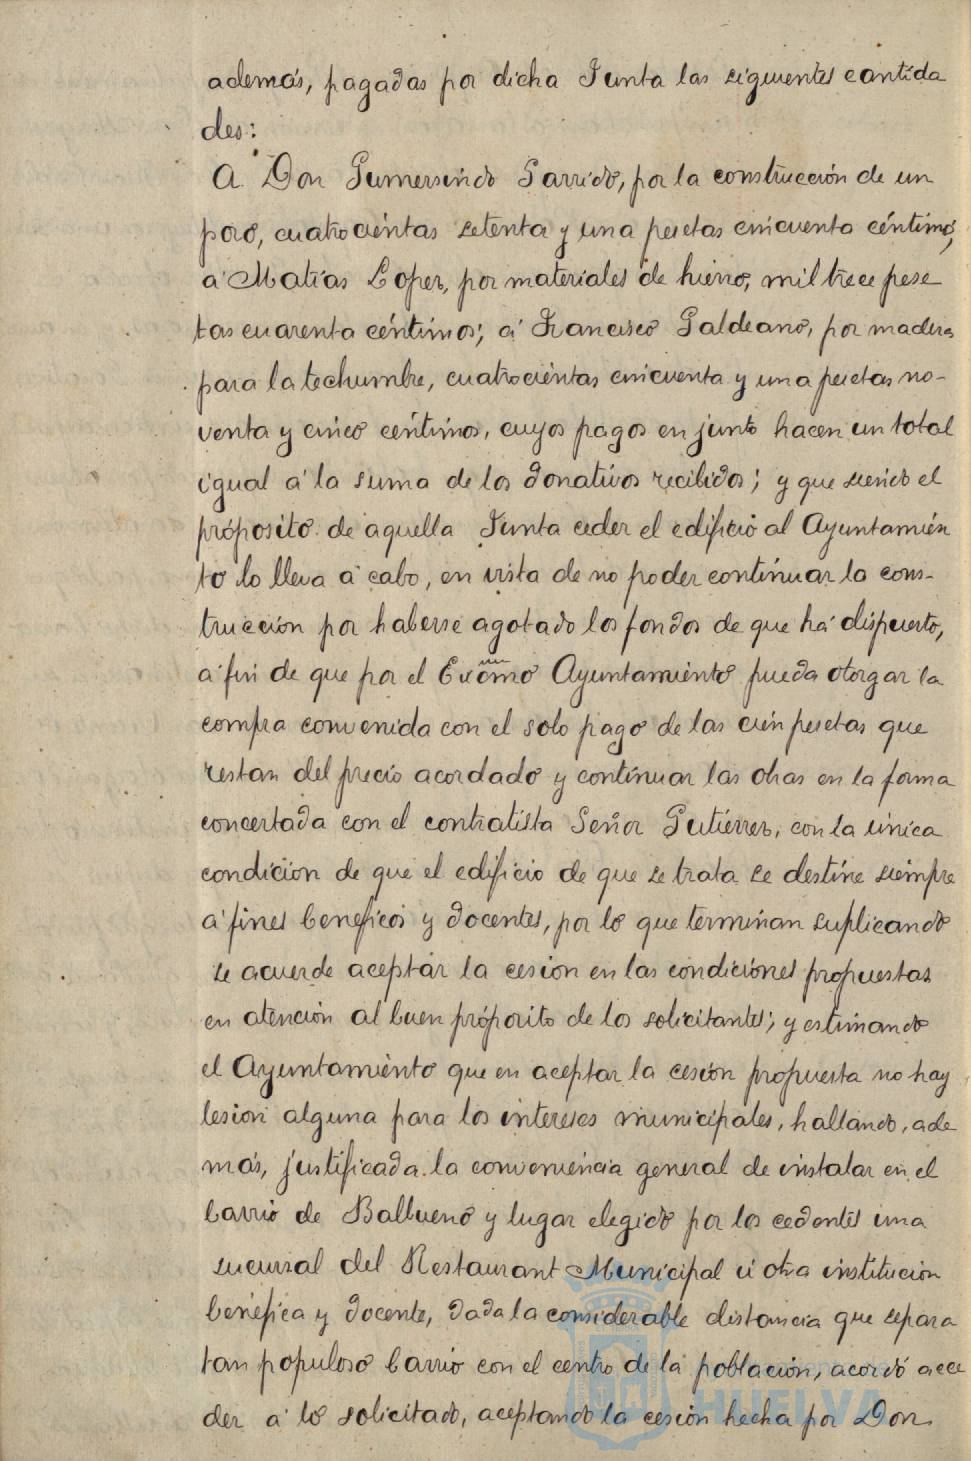 además, pagadas por dicha Junta las siguientes cantida
des:
A Don Gumersindo Garrido, por la construcción de un
poro, cuatrocientas setenta y una pesetas cincuenta céntimos;
á Matías Lopez, por materiales de hierro, mil trece pese
tas cuarenta céntimos; á Francisco Galdeano, por maderas
para la techumbre, cuatrocientas cincuenta y una pesetas no-
venta y cinco céntimos, cuyos pagos en junto hacen un total
igual á la suma de los donativos recibidos; y que siendo el
próposito de aquella Junta ceder el edificio al Ayuntamien
to lo lleva á cabo, en vista de no poder continuar la cons-
trucción por haberse agotado los fondos de que há dispuesto,
á fin de que por el Excmo Ayuntamiento pueda otorgar la
compra convenida con el solo pago de las cien pesetas que
restan del precio acordado y continuar las obras en la forma
concertada con el contratista Señor Gutiérrez, con la única
condición de que el edificio de que se trata se destine siempre
á fines beneficos y docentes, por lo que terminan suplicando
se acuerde aceptar la cesion en las condiciones propuestas
en atención al buen próposito de los solicitantes; y estimando
el Ayuntamiento que en aceptar la cesión propuesta no hay
lesion alguna para los intereses municipales, hallando, ade
más, justificada la conveniencia general de instalar en el
barrio de Balbueno y lugar elegido por los cedentes una
sucursal del Restaurant Municipal ú otra institución
benéfica y docente, dada la considerable distancia que separa
tan populoso barrio con el centro de la población, acordó acce
der á lo solicitado, aceptando la cesión hecha por Don
HUELVA